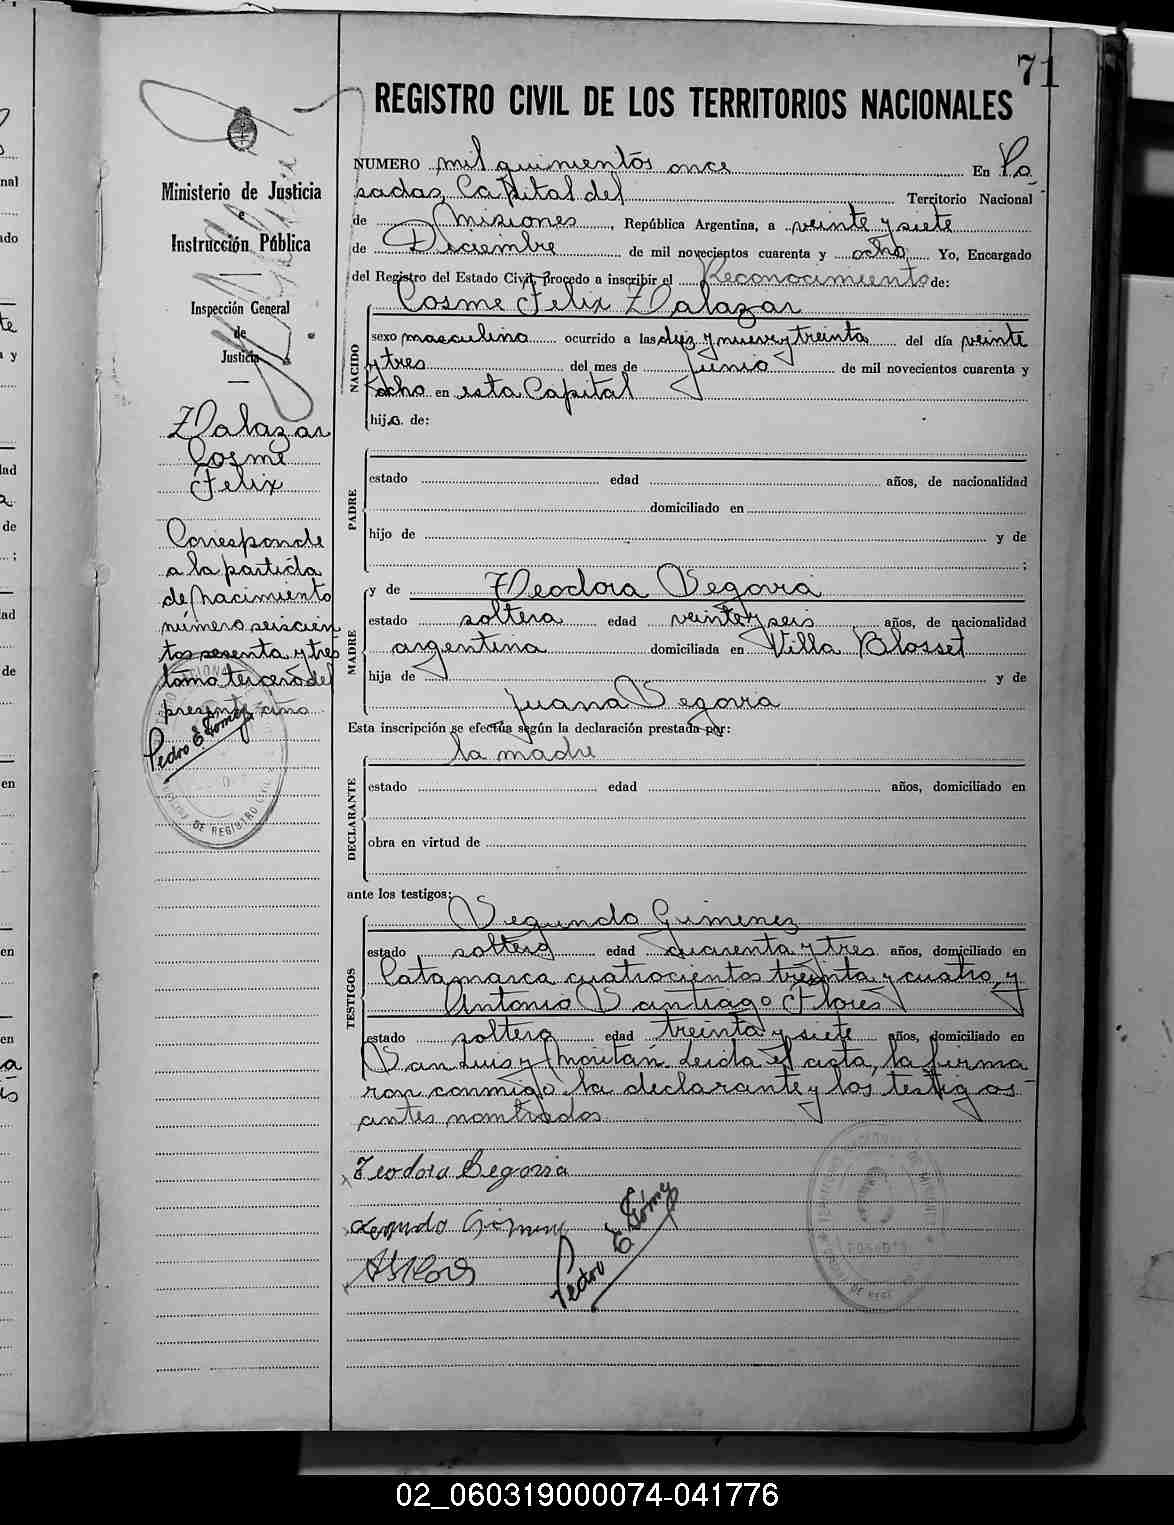 71
REGISTRO CIVIL DE LOS TERRITORIOS NACIONALES
Ministerio de Justicia
e
Instrucción Pública
Inspección General
de
Justicia
Zalazar
Cosme
Felix
Corresponde
a la partida
de nacimiento
número seiscien
tos sesenta y tres
tomo tercero del
presente año
Pedro E Gómez
DE REGISTRO CIVIL
NUMERO mil quinientos once En Po
sadas, Capital del Territorio Nacional
de Misiones, República Argentina, a veinte y siete
de Diciembre de mil novecientos cuarenta y ocho Yo, Encargado
del Registro del Estado Civil, procedo a inscribir el Reconocimiento de:
Cosme Felix Zalazar
NACIDO
sexo masculino ocurrido a las diez y nueve y treinta del día veinte
y tres del mes de Junio de mil novecientos cuarenta y
ocho en esta Capital
hijo de:
PADRE
estado edad años, de nacionalidad
domiciliado en
hijo de y de
;
MADRE
y de Teodora Segovia
estado soltera edad veinte y seis años, de nacionalidad
argentina domiciliada en Villa Blosset
hija de y de
Juana Segovia
Esta inscripción se efectúa según la declaración prestada por:
la madre
DECLARANTE
estado edad años, domiciliado en
obra en virtud de
ante los testigos:
TESTIGOS
Segundo Gimenez
estado soltero edad cuarenta y tres años, domiciliado en
Catamarca cuatrocientos treinta y cuatro, y
Antonio Santiago Flores
estado soltero edad treinta y siete años, domiciliado en
San Luis y Moritán. Leida el acta, la firma
ron conmigo la declarante y los testigos
antes nombrados
Teodora Segovia
Segundo Gimenez
Pedro E Gómez
02_060319000074-041776